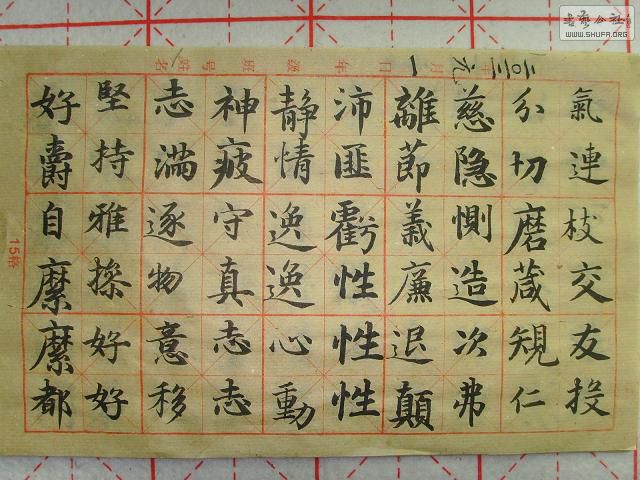 書藝公社
WWW.SHUFA.ORG
元 月 一 日 年 级 班 号 姓名
氣連枝交友投
分切磨葴規仁
慈隐惻造次弗
離節義廉退顛
沛匪虧性性性
静情逸逸心動
神疲守真志志
志満逐物意移
堅持雅操好好
好爵自縻縻都
15格